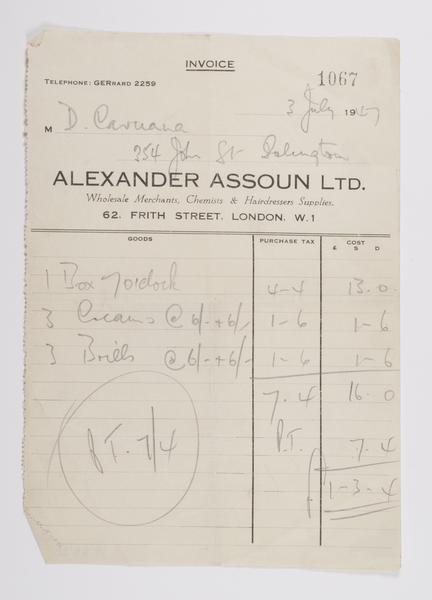 INVOICE
TELEPHONE: GERRARD 2259
1067
3 July 1947
M D. Caruana
254 John St Islington
ALEXANDER ASSOUN LTD.
Wholesale Merchants, Chemists & Hairdressers Supplies.
62. FRITH STREET. LONDON. W.1
GOODS PURCHASE TAX COST
£ S D
1 Box 7 O'clock 4-4 13.0
3 Creams @ 6/- + 6/- 1-6 1-6
3 Brills @ 6/- + 6/- 1-6 1-6
7.4 16.0
P.T. 7/4 P.T. 7.4
1-3-4